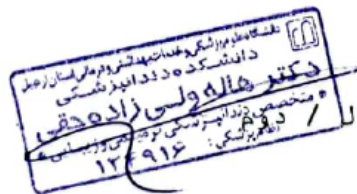 دانشگاه علوم پزشکی و خدمات بهداشتی و درمانی استان اردبیل
دانشکده دندانپزشکی
دکتر هاله ولی زاده حقی
متخصص دندانپزشکی ترمیمی و زیبایی
نظام پزشکی: ۱۲۴۹۱۶
/ دوم